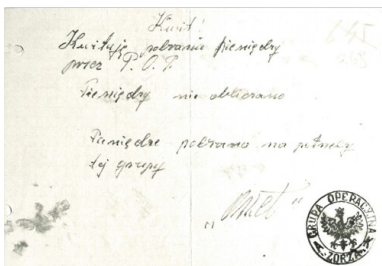 Kwit!
Kwituję pobranie pieniędzy
przez P.O.P.
Pieniędzy nie obliczano
Pieniądze pobrano na potrzeby
tej grupy
GRUPA OPERACYJNA
"ZORZA"